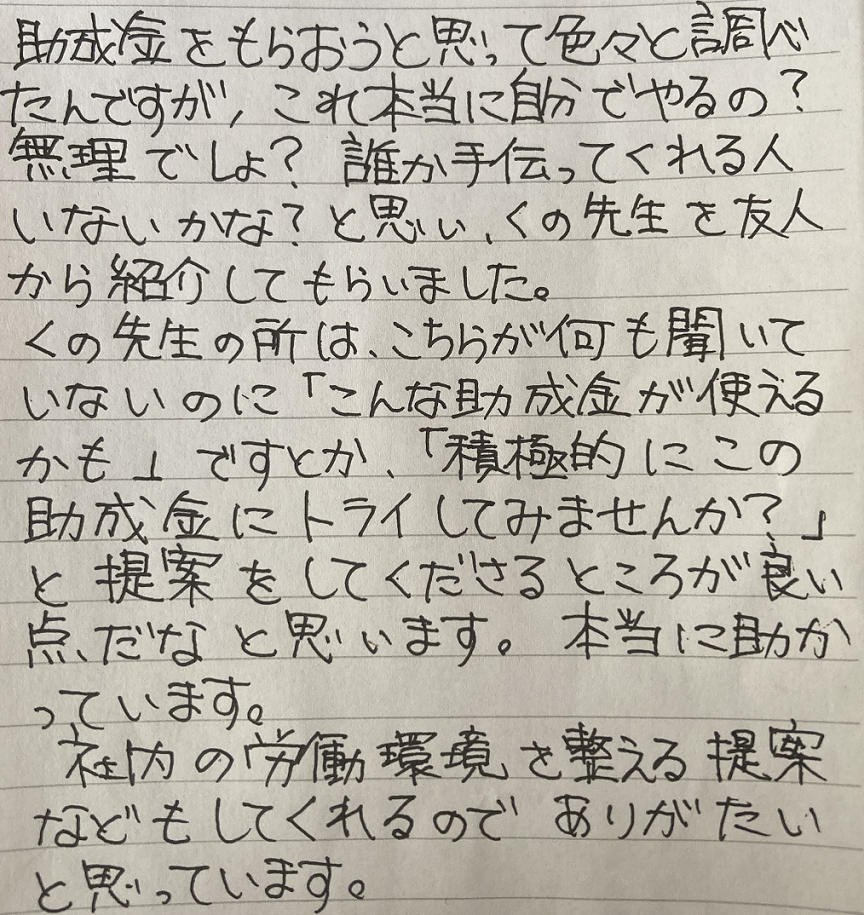 助成金をもらおうと思って色々と調べ
たんですが、これ本当に自分でやるの?
無理でしょ? 誰か手伝ってくれる人
いないかな?と思い、くの先生を友人
から紹介してもらいました。
くの先生の所は、こちらが何も聞いて
いないのに「こんな助成金が使える
かも」ですとか、「積極的にこの
助成金にトライしてみませんか?」
と提案をしてくださるところが良い
点だなと思います。本当に助か
っています。
社内の労働環境を整える提案
などもしてくれるのでありがたい
と思っています。